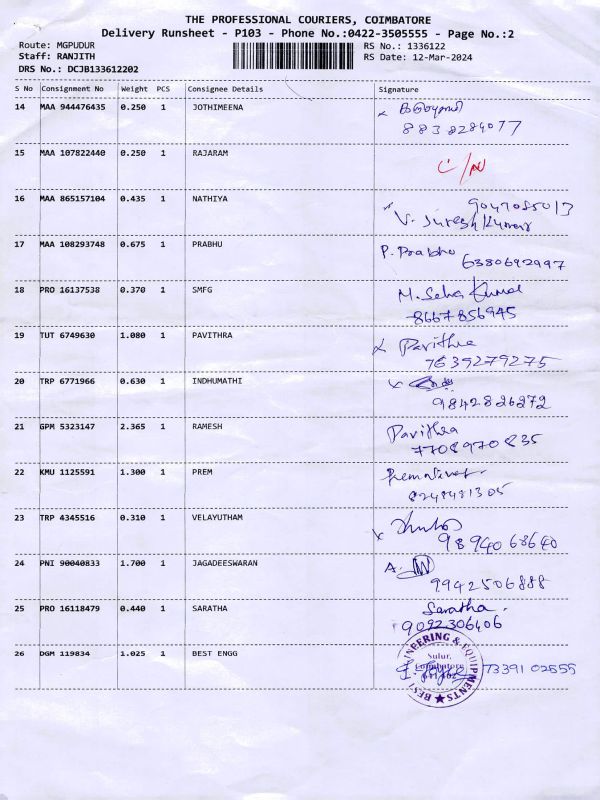 THE PROFESSIONAL COURIERS, COIMBATORE
Delivery Runsheet - P103 - Phone No.:0422-3505555 - Page No.:2
Route: MGPUDUR RS No.: 1336122
Staff: RANJITH RS Date: 12-Mar-2024
DRS No.: DCJB133612202
S No Consignment No Weight PCS Consignee Details Signature
14 MAA 944476435 0.250 1 JOTHIMEENA
8838284077
15 MAA 107822440 0.250 1 RAJARAM
16 MAA 865157104 0.435 1 NATHIYA 9047085013
V. Suresh Kumar
17 MAA 108293748 0.675 1 PRABHU P. Prabhu
6380692997
18 PRO 16137538 0.370 1 SMFG M. Selva Kumar
8667856945
19 TUT 6749630 1.080 1 PAVITHRA Pavithra
7639279275
20 TRP 6771966 0.630 1 INDHUMATHI
9842826272
21 GPM 5323147 2.365 1 RAMESH Pavithra
7708970835
22 KMU 1125591 1.300 1 PREM
8248481305
23 TRP 4345516 0.310 1 VELAYUTHAM
9894068640
24 PNI 90040833 1.700 1 JAGADEESWARAN A.
9942506888
25 PRO 16118479 0.440 1 SARATHA Saratha.
9092306406
26 DGM 119834 1.025 1 BEST ENGG 7339102555
BEST ENGINEERING & EQUIPMENTS
Sulur,
Coimbatore